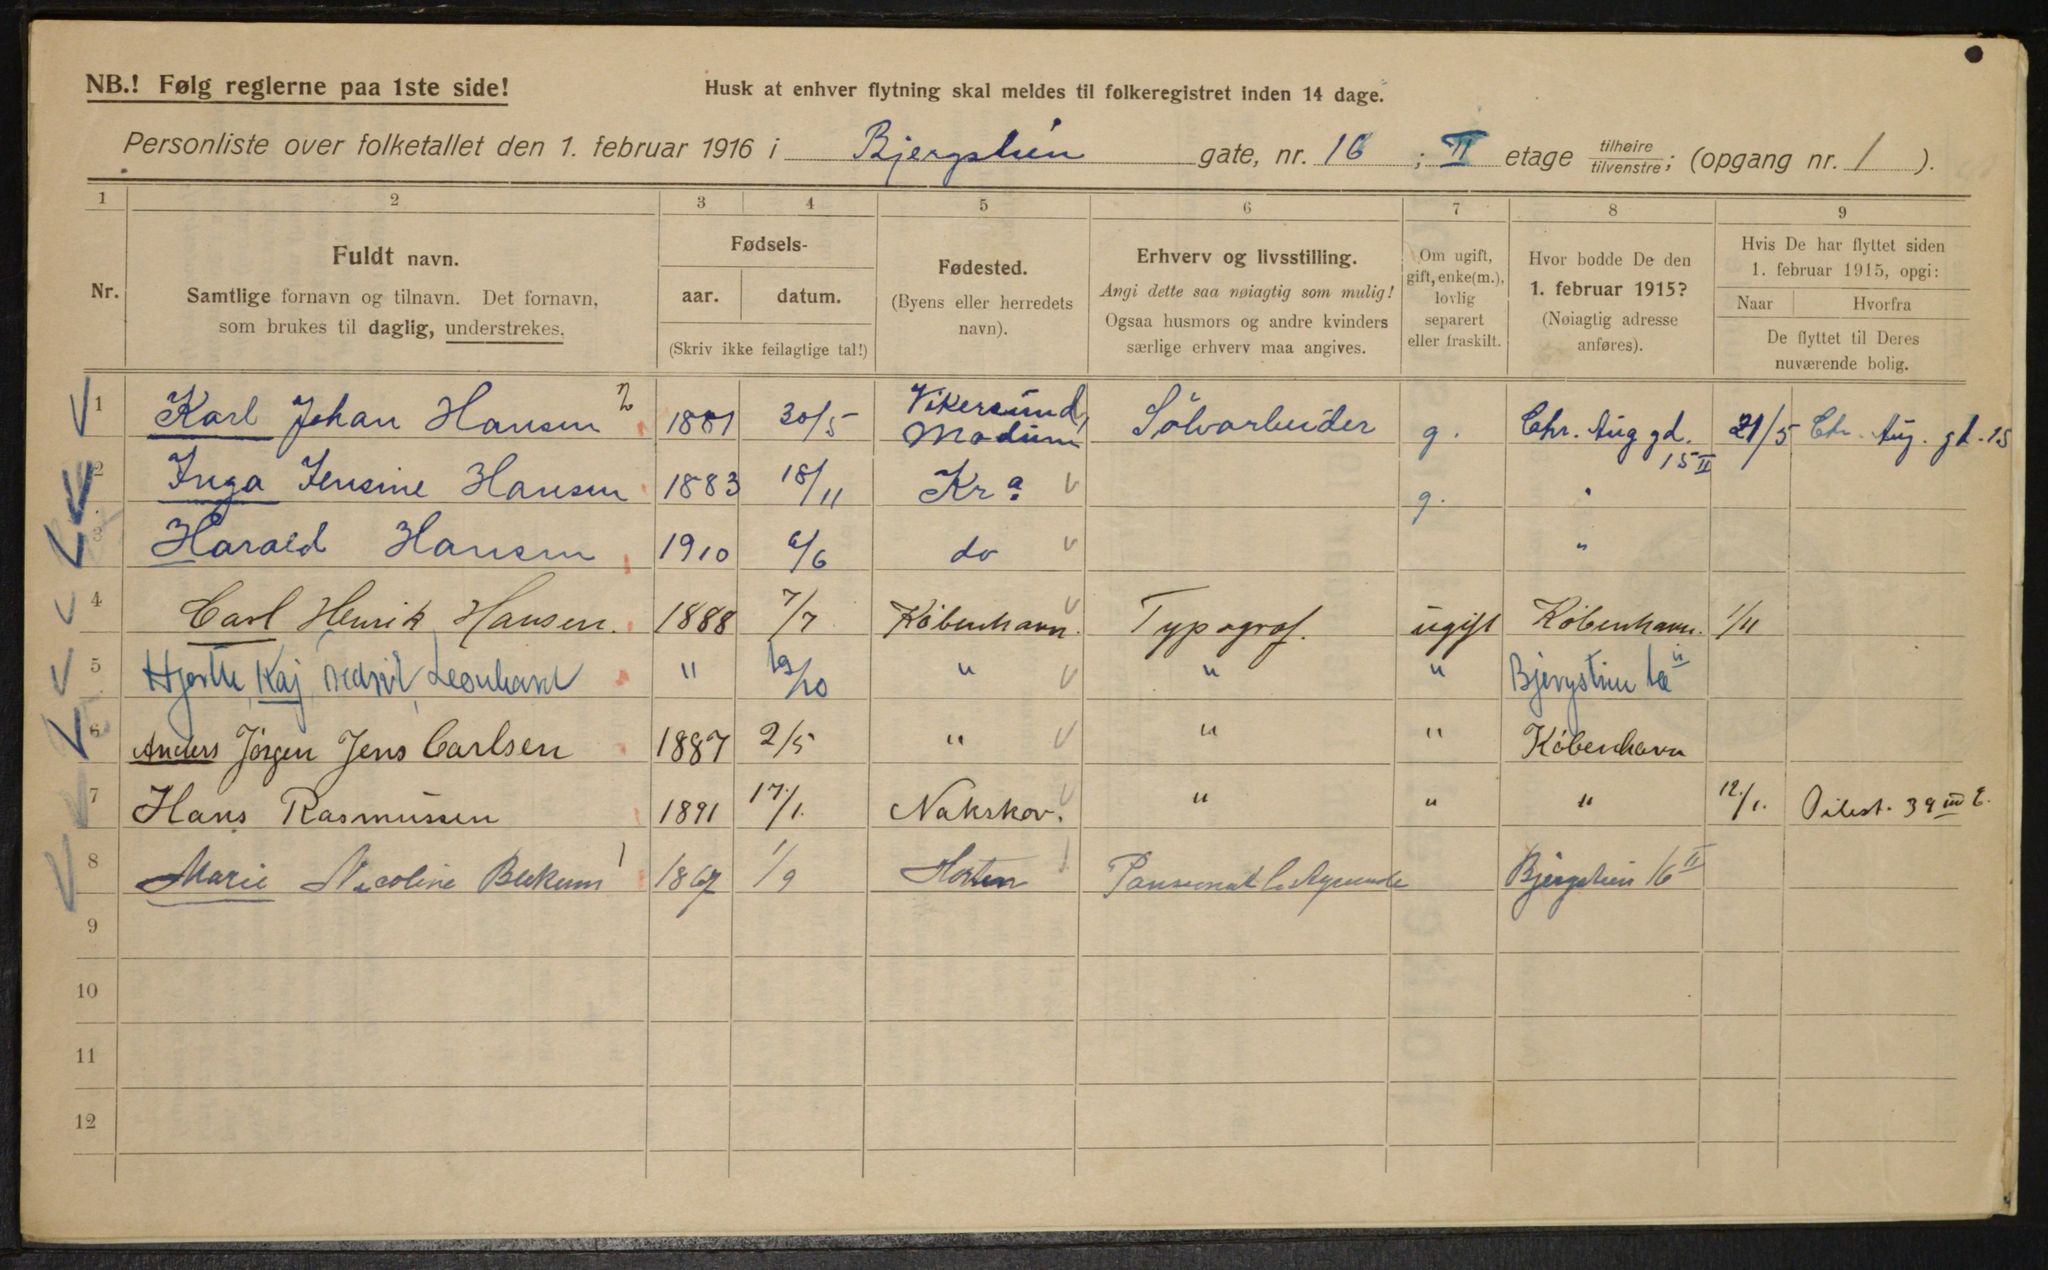 NB.! Følg reglerne paa 1ste side!
Husk at enhver flytning skal meldes til folkeregistret inden 14 dage.
Personliste over folketallet den 1. februar 1916 i Bjergstien gate, nr. 16 ; II etage tilhøire/tilvenstre; (opgang nr. 1 ).
1 2 3 4 5 6 7 8 9
Nr.
Fuldt navn.
Samtlige fornavn og tilnavn. Det fornavn,
som brukes til daglig, understrekes.
Fødsels-
aar. datum.
(Skriv ikke feilagtige tal!)
Fødested.
(Byens eller herredets
navn).
Erhverv og livsstilling.
Angi dette saa nøiagtig som mulig!
Ogsaa husmors og andre kvinders
særlige erhverv maa angives.
Om ugift,
gift, enke(m.),
lovlig
separert
eller fraskilt.
Hvor bodde De den
1. februar 1915?
(Nøiagtig adresse
anføres).
Hvis De har flyttet siden
1. februar 1915, opgi:
Naar Hvorfra
De flyttet til Deres
nuværende bolig.
1 Karl Johan Hansen 2 1881 30/5 Vikersund, Modum Sölvarbeider g. Chr. Aug gd. 15 II 21/5 Chr. Aug. gd. 15
2 Inga Jensine Hansen 1883 18/11 Kr a. g. "
3 Harald Hansen 1910 6/6 do "
4 Carl Henrik Hansen. 1888 7/7 København. Typograf. ugift København. 1/11
5 Hjorth, Kaj Leonhard " /10 " " " Bjergstien II
6 Anders Jörgen Jens Carlsen 1887 2/5 " " " København
7 Hans Rasmussen 1891 17/1. Nakskov. " " " 12/1. Pilest. 39 III E.
8 Marie Nicoline 1 1867 1/9 Horten Pansionat bestyrende Bjergstien 16 II
9
10
11
12